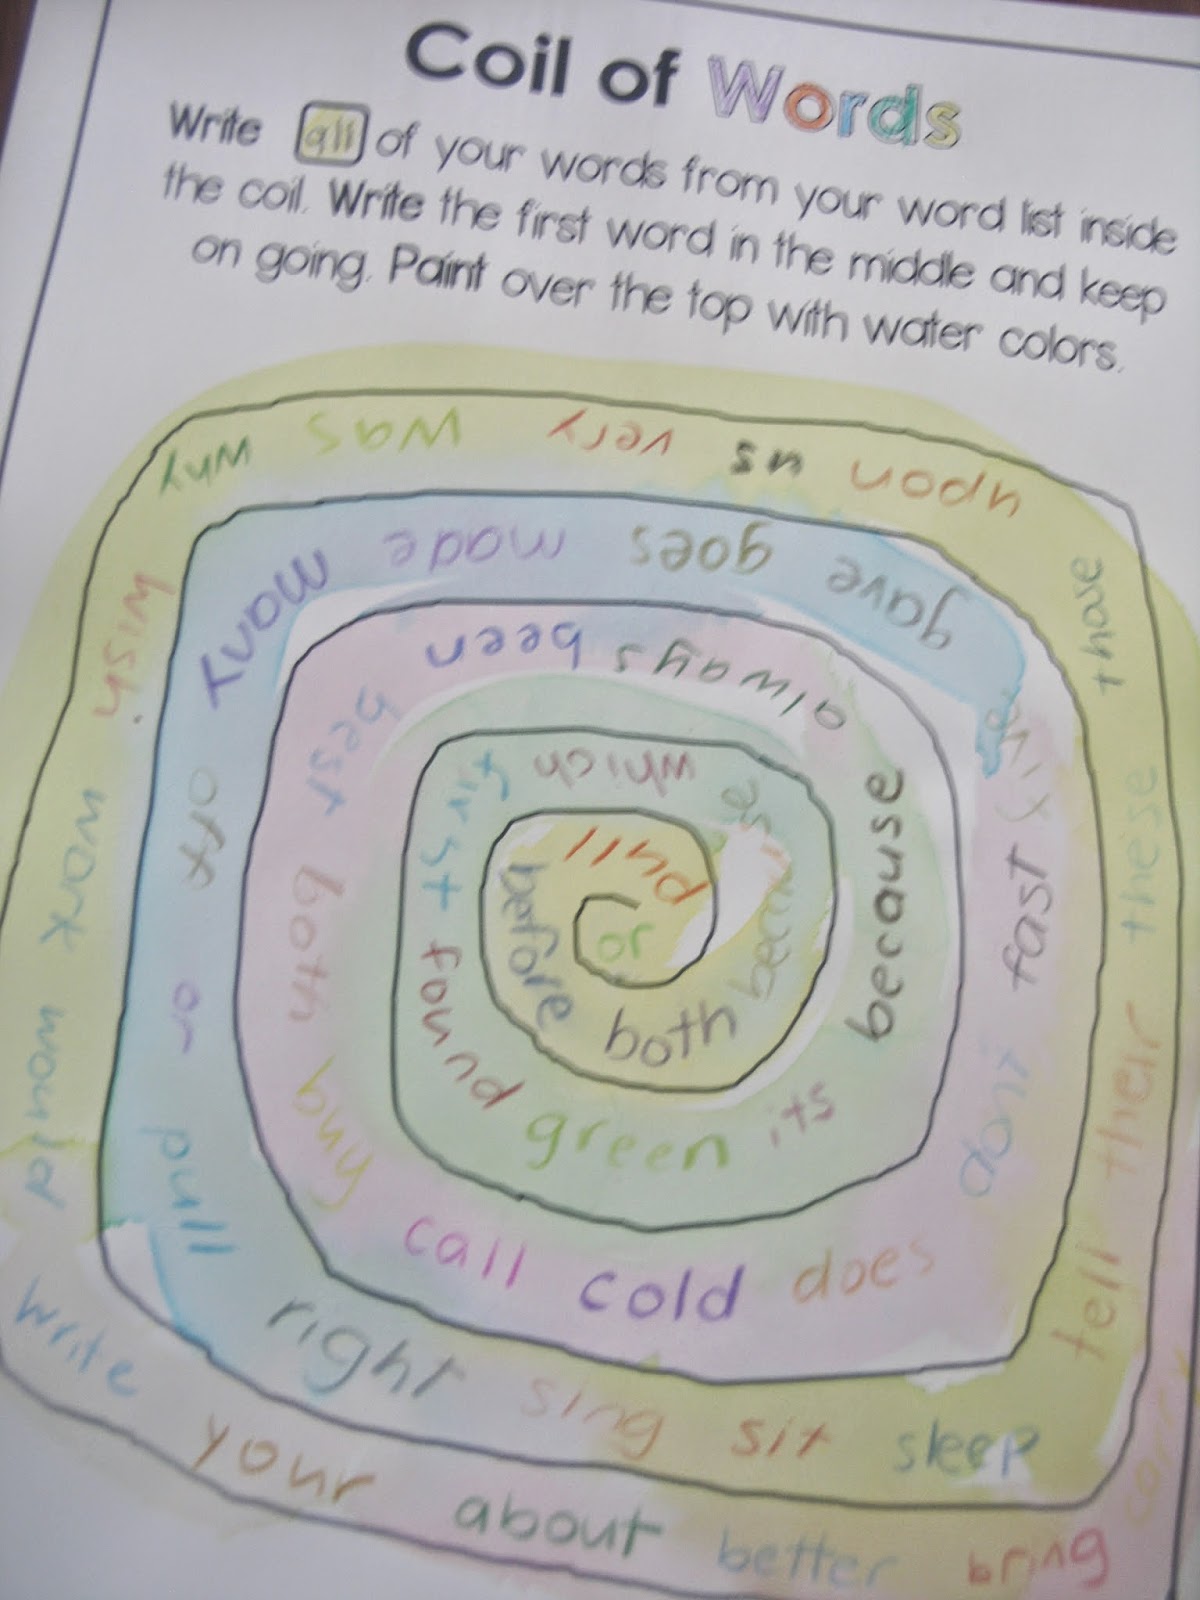 Coil of Words
Write all of your words from your word list inside
the coil. Write the first word in the middle and keep
on going. Paint over the top with water colors.
or
pull
before
both
because
which
first
found
green
its
because
always
been
best
both
buy
call
cold
does
dont
fast
five
gave
goes
made
many
off
or
pull
right
sing
sit
sleep
tell
their
these
those
upon
us
very
was
why
wish
work
would
write
your
about
better
bring